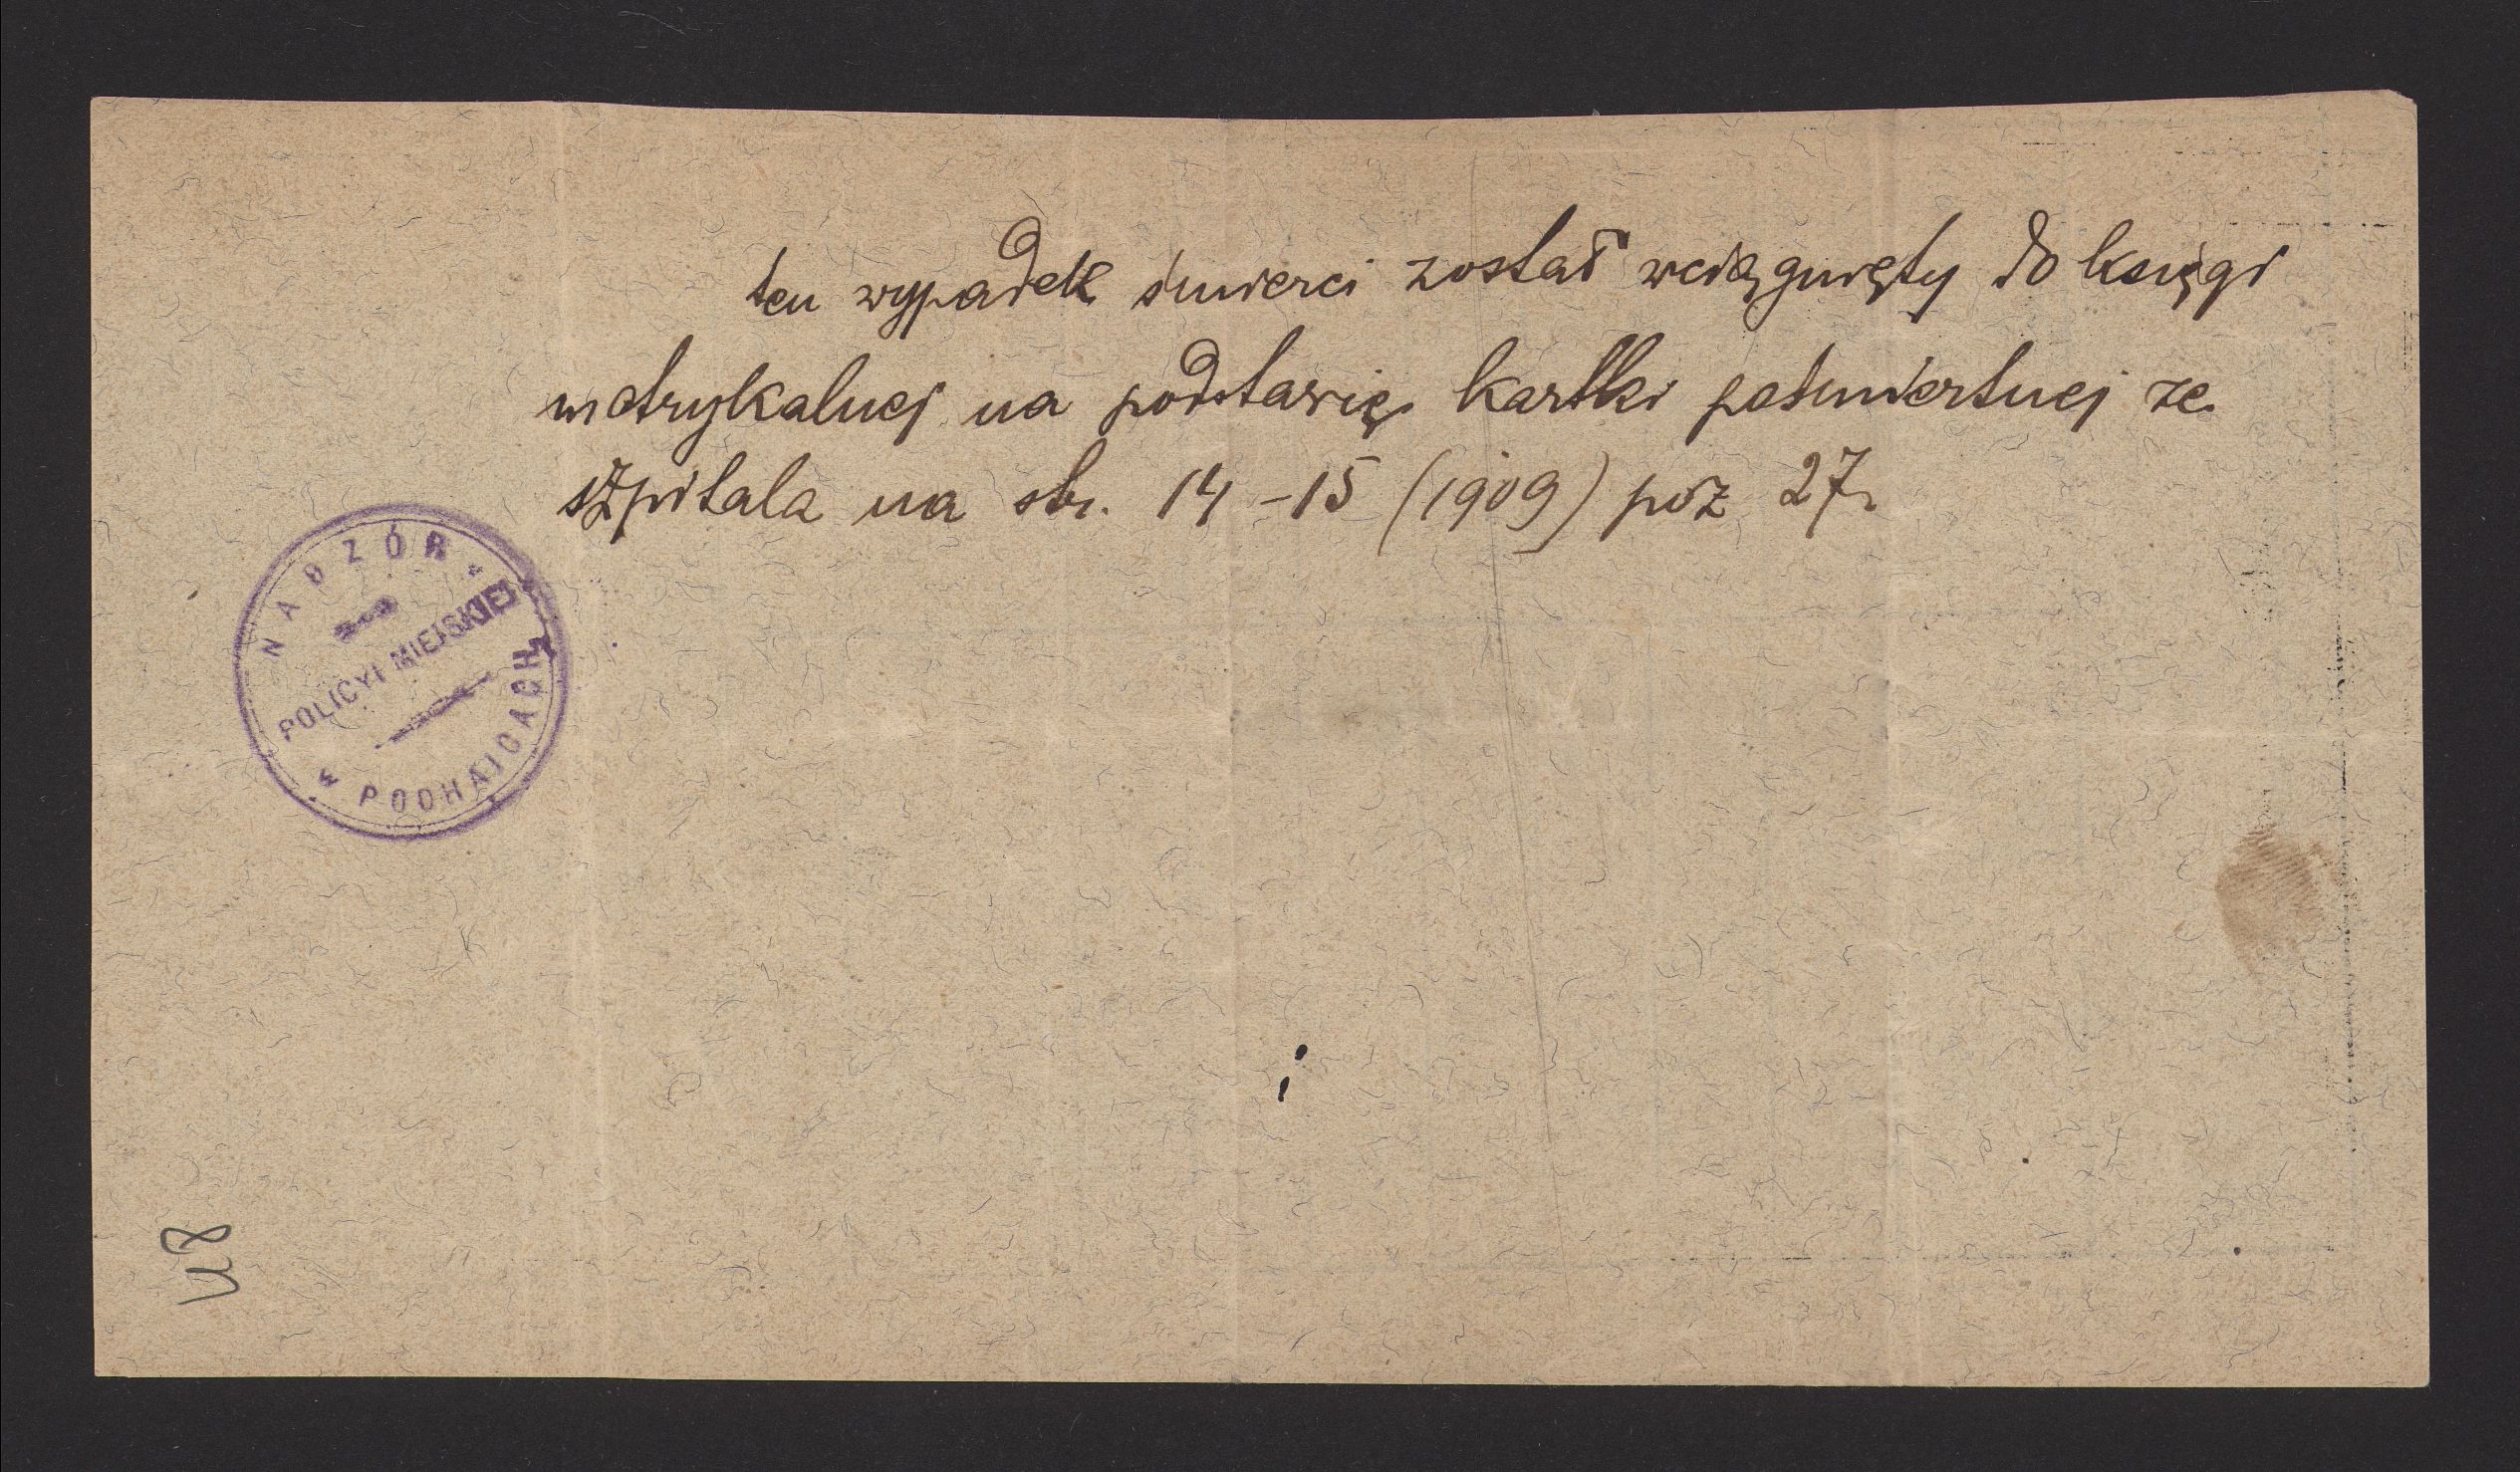 ten wypadek śmierci został wciągnięty do księgi
metrykalnej na podstawię kartki pośmiertnej ze
szpitala na str. 14 - 15 (1909) poz 27.
NADZÓR
POLICYI MIEJSKIEJ
w PODHAJCACH